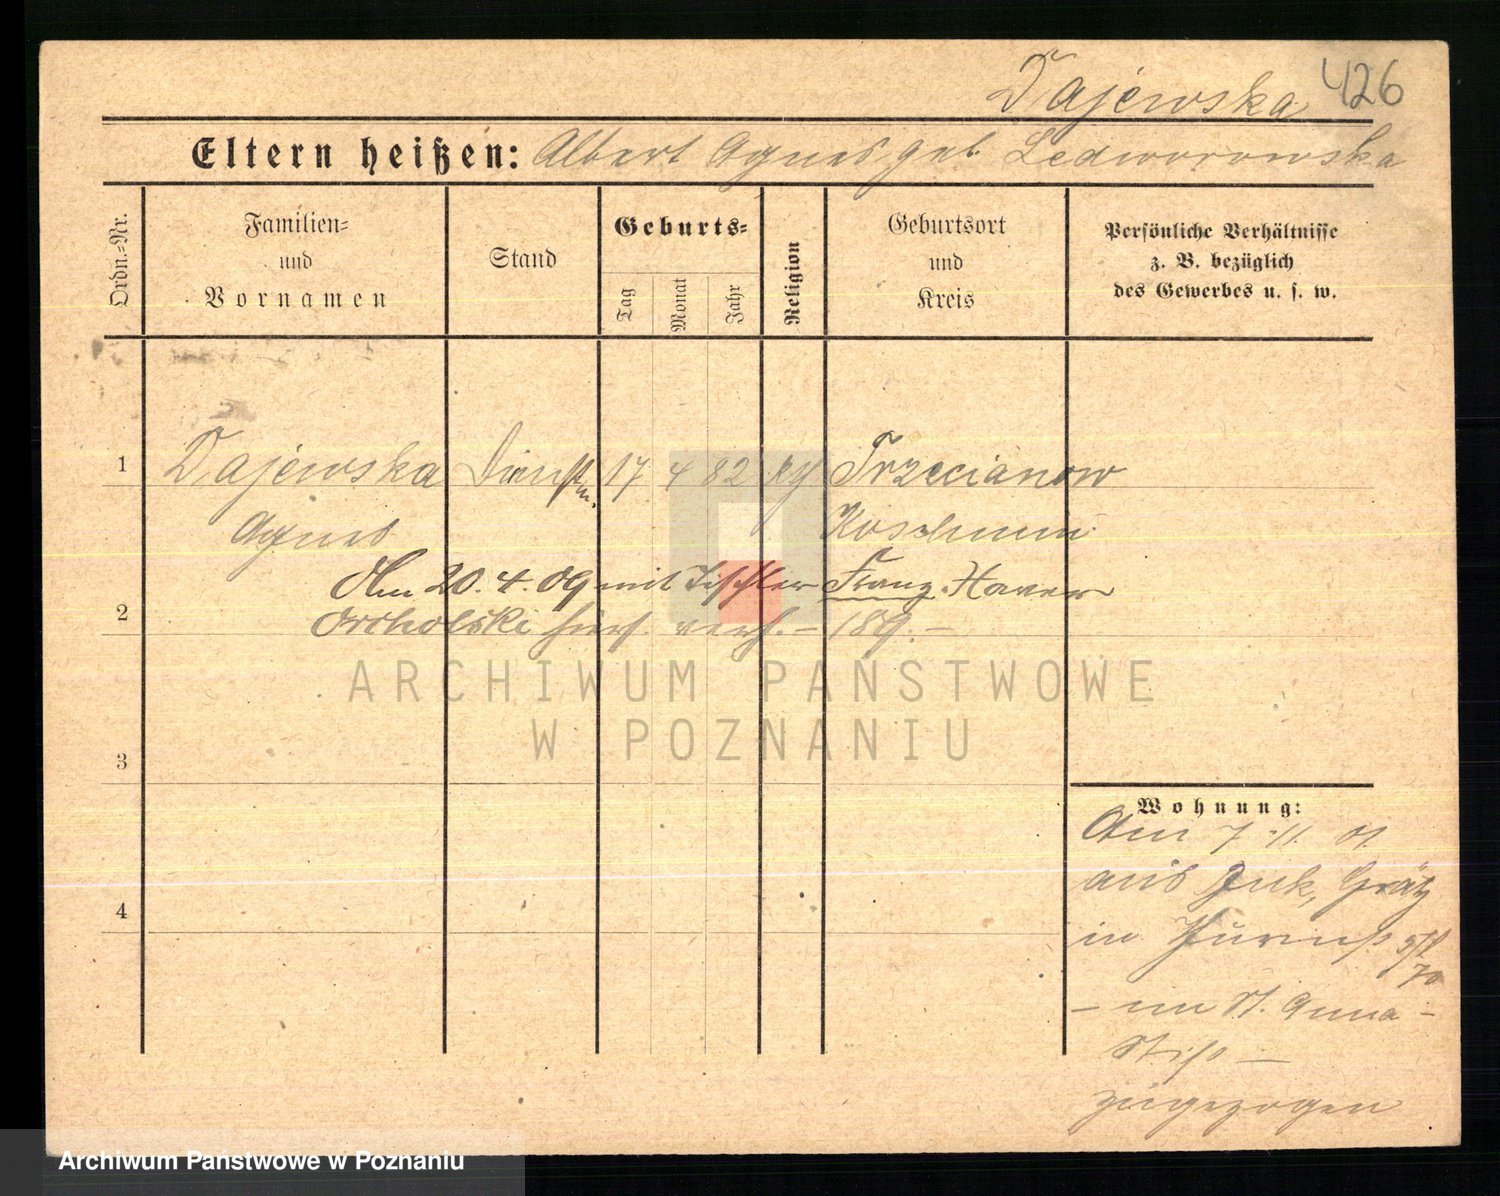 Dajewska 426
Eltern heißen: Albert Agnes geb. Ledworowska
Ordn.=Nr.
Familien=
und
Vornamen
Stand
Geburts=
Tag
Monat
Jahr
Religion
Geburtsort
und
Kreis
Persönliche Verhältnisse
z. B. bezüglich
des Gewerbes u. s. w.
1 Dajewska Dienstm. 17 4 82 Trzecianow
Agnes Koschmin
Am 20.4.09 mit Tischler Franz Xaver
2
Orcholski hies. verh. – 189. –
ARCHIWUM PAŃSTWOWE
W POZNANIU
3
Wohnung:
Am 7.11.01
4
aus Buk, Grätz
in
– im St. Anna –
Stift –
zugezogen
Archiwum Państwowe w Poznaniu